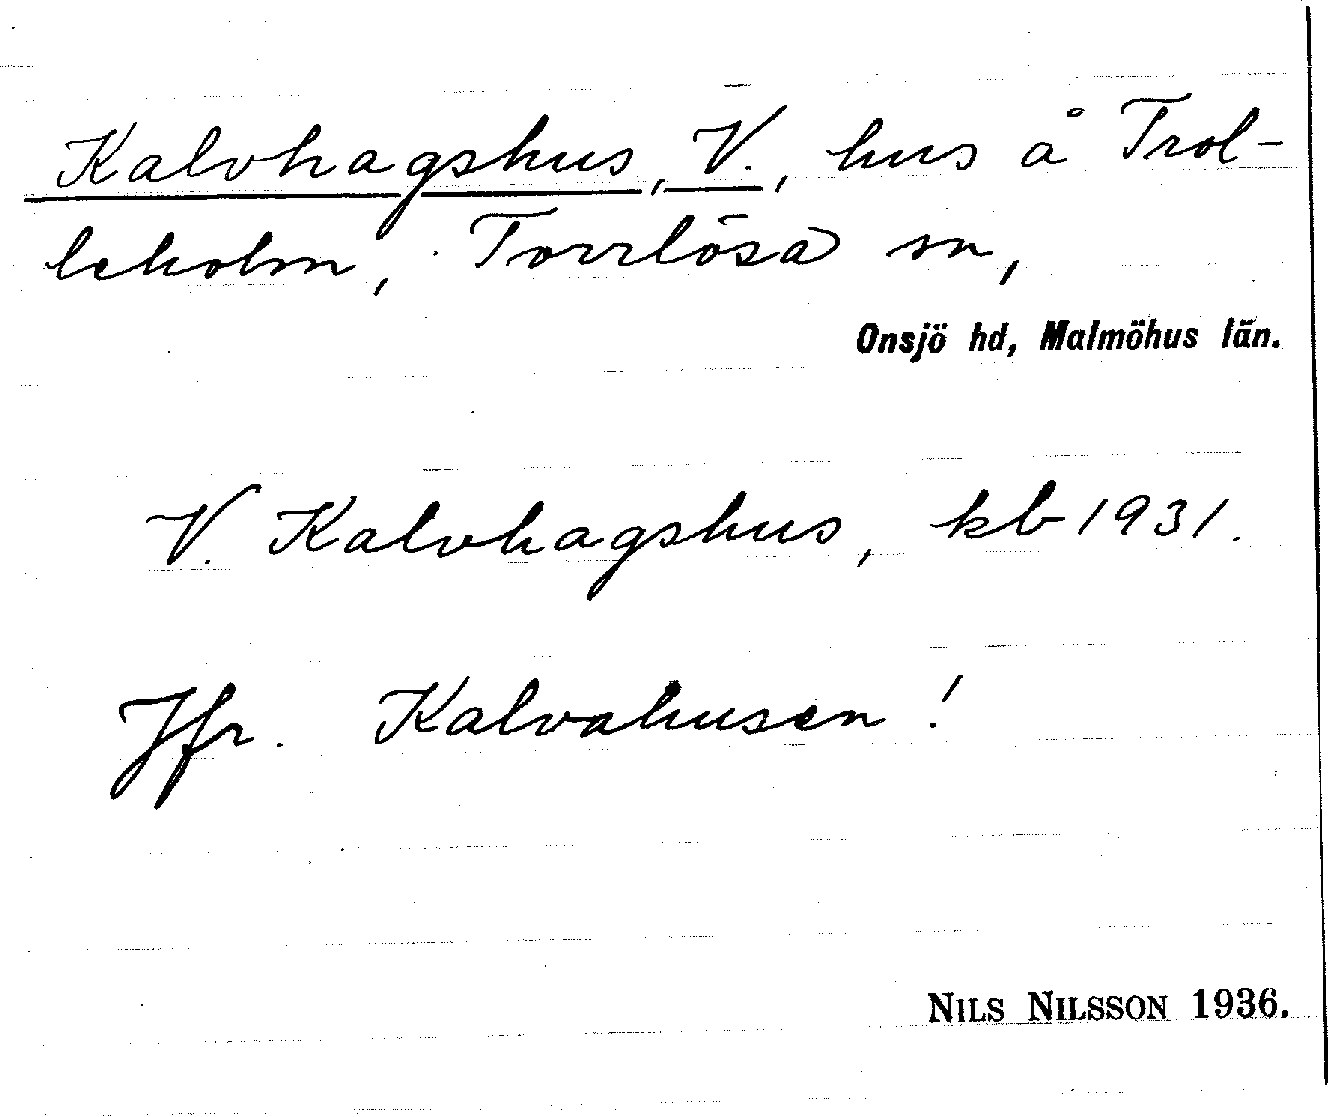 Kalvhagshus, V., hus å Trol-
leholm, Torrlösa sn,
Onsjö hd, Malmöhus län.
V. Kalvhagshus, kb 1931.
Jfr. Kalvahusen!
NILS NILSSON 1936.